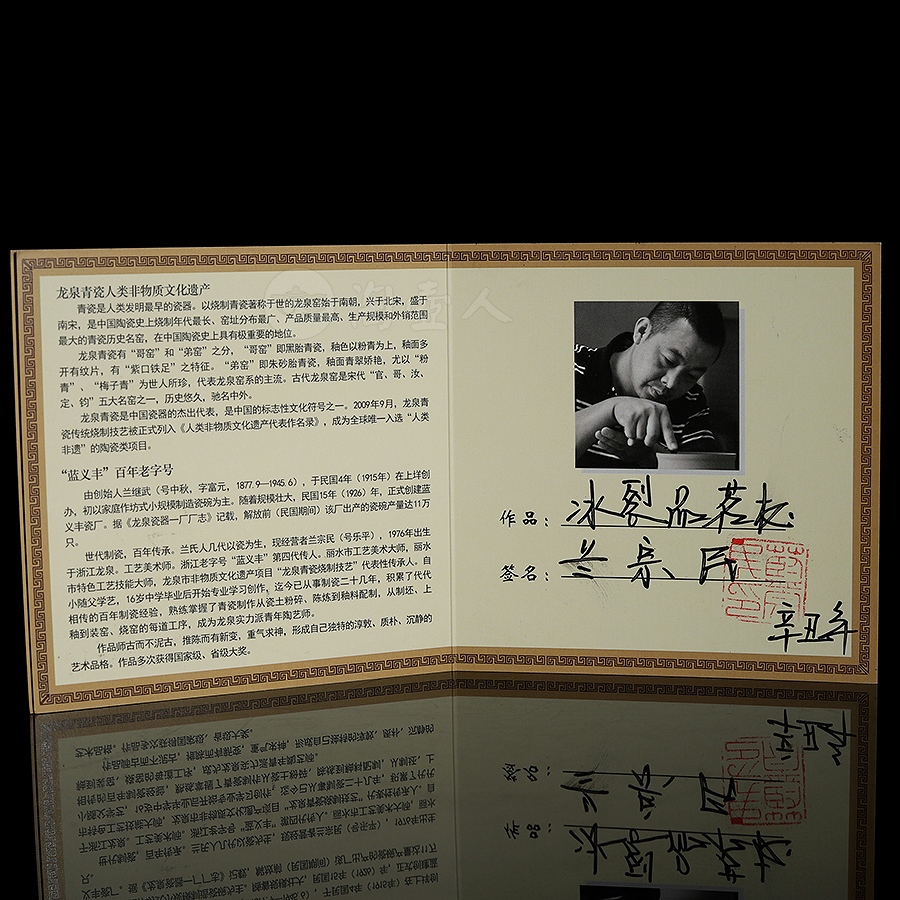 龙泉青瓷人类非物质文化遗产
青瓷是人类发明最早的瓷器。以烧制青瓷著称于世的龙泉窑始于南朝，兴于北宋，盛于
南宋，是中国陶瓷史上烧制年代最长、窑址分布最广、产品质量最高、生产规模和外销范围
最大的青瓷历史名窑，在中国陶瓷史上具有极重要的地位。
龙泉青瓷有“哥窑”和“弟窑”之分，“哥窑”即黑胎青瓷，釉色以粉青为上，釉面多
开有纹片，有“紫口铁足”之特征。“弟窑”即朱砂胎青瓷，釉面青翠娇艳，尤以“粉
青”、“梅子青”为世人所珍，代表龙泉窑系的主流。古代龙泉窑是宋代“官、哥、汝、
定、钧”五大名窑之一，历史悠久，驰名中外。
龙泉青瓷是中国瓷器的杰出代表，是中国的标志性文化符号之一。2009年9月，龙泉青
瓷传统烧制技艺被正式列入《人类非物质文化遗产代表作名录》，成为全球唯一入选“人类
非遗”的陶瓷类项目。
“蓝义丰”百年老字号
由创始人兰继武（号中秋，字富元，1877.9—1945.6），于民国4年（1915年）在上垟创
办，初以家庭作坊式小规模制造瓷碗为主。随着规模壮大，民国15年（1926）年，正式创建蓝
义丰瓷厂。据《龙泉瓷器一厂厂志》记载，解放前（民国期间）该厂出产的瓷碗产量达11万
只。
世代制瓷，百年传承。兰氏人几代以瓷为生，现经营者兰宗民（号乐平），1976年出生
于浙江龙泉。工艺美术师。浙江老字号“蓝义丰”第四代传人。丽水市工艺美术大师，丽水
市特色工艺技能大师，龙泉市非物质文化遗产项目“龙泉青瓷烧制技艺”代表性传承人。自
小随父学艺，16岁中学毕业后开始专业学习创作，迄今已从事制瓷二十几年，积累了代代
相传的百年制瓷经验，熟练掌握了青瓷制作从瓷土粉碎、陈炼到釉料配制，从制坯、上
釉到装窑、烧窑的每道工序，成为龙泉实力派青年陶艺师。
作品师古而不泥古，推陈而有新变，重气求神，形成自己独特的淳敦、质朴、沉静的
艺术品格。作品多次获得国家级、省级大奖。
淘壶人
作品：冰裂品茗杯
签名：兰宗民
辛丑年